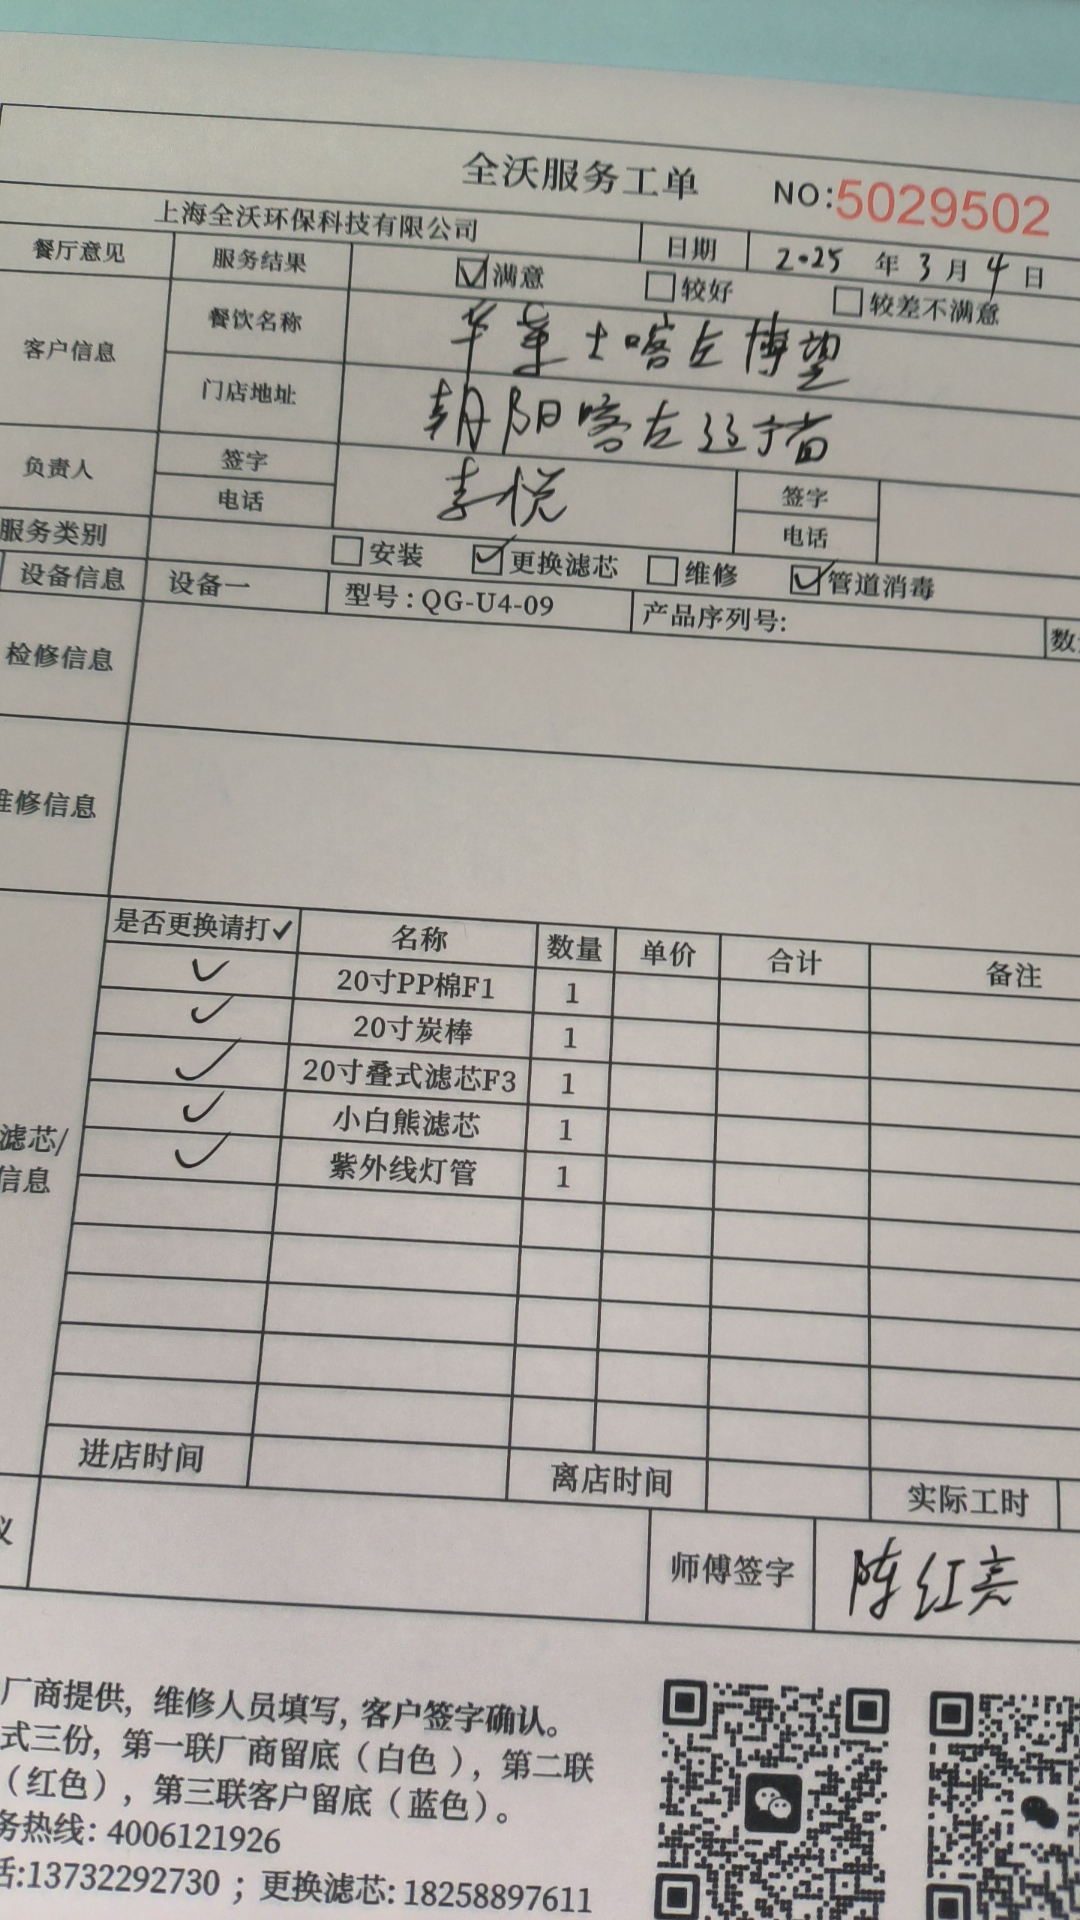 全沃服务工单 NO:5029502
上海全沃环保科技有限公司 日期 2025 年 3 月 4 日
餐厅意见 服务结果 ☑满意 □较好 □较差不满意
客户信息 餐饮名称 华莱士喀左博望
门店地址 朝阳喀左辽宁省
负责人 签字 李悦 签字
电话 电话
服务类别 □安装 ☑更换滤芯 □维修 ☑管道消毒
设备信息 设备一 型号：QG-U4-09 产品序列号: 数
检修信息
维修信息
是否更换请打✓ 名称 数量 单价 合计 备注
✓ 20寸PP棉F1 1
✓ 20寸炭棒 1
✓ 20寸叠式滤芯F3 1
✓ 小白熊滤芯 1
✓ 紫外线灯管 1
滤芯/
信息
进店时间 离店时间 实际工时
议 师傅签字 陈红亮
厂商提供，维修人员填写，客户签字确认。
式三份，第一联厂商留底（白色），第二联
（红色），第三联客户留底（蓝色）。
务热线: 4006121926
话:13732292730；更换滤芯: 18258897611